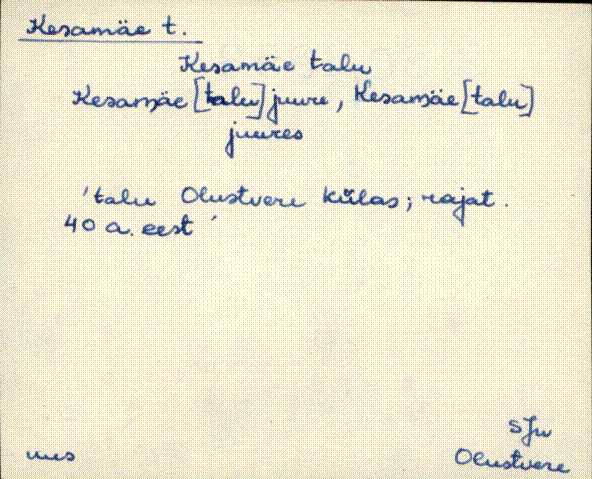 Kesamäe t.
Kesamäe talu
Kesamäe [talu] juure, Kesamäe [talu]
juures
'talu Olustvere külas; rajat.
40 a. eest'
SJu
uus
Olustvere